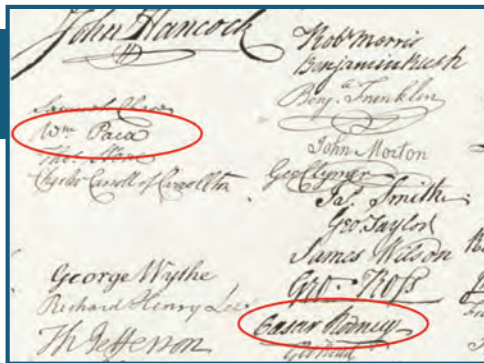 John Hancock
Samuel Chase
Wm Paca
Thos. Stone
Charles Carroll of Carrollton
George Wythe
Richard Henry Lee
Th Jefferson
Robt Morris
Benjamin Rush
Benja Franklin
John Morton
Geo Clymer
Jas. Smith
Geo. Taylor
James Wilson
Geo. Ross
Caesar Rodney
Geo Read